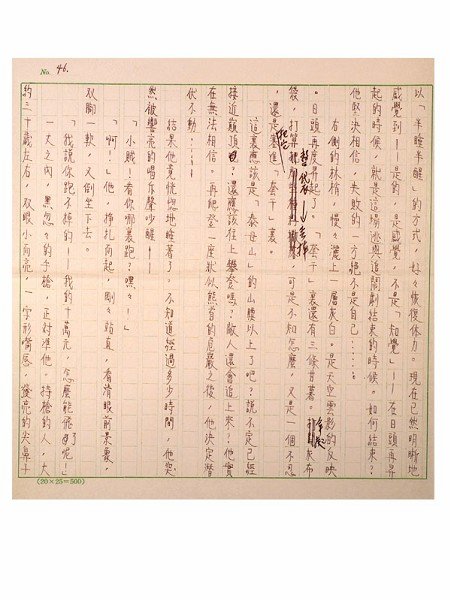 No. 46.
以「半睡半醒」的方式,好々恢復体力。現在已然明晰地
感覺到——是的,是感覺,不是「知覺」——在日頭再昇
起的時候,就是這場逃與追鬧劇結束的時候。如何結束?
他堅決相信,失敗的一方絶不是自己……
右側的林梢,慢々濃上一層灰白。是天空雲影的反映
。日頭再度昇起了。「奎干」裏還有三條苦薯。
後,打算把 整袋 去掉,可是不知怎麼,又是一個不忍
,還是塞進「奎干」裏。
這裏應該是「泰母山」的山腰以上了吧?說不定已經
接近巔頂。還應該往上攀登嗎?敵人還會追上來?他實
在無法相信。再爬登一座狀似熊首的危巖之後,他決定潛
伏不動……
結果他竟恍惚地睡著了。不知道經過多少時間,他突
然被響亮的喝斥聲吵醒——
「小賊!看你哪裏跑?嘿々!」
「啊!」他,掙扎而起,剛々站直,看清眼前景象,
双脚一軟,又倒坐下去。
「我說你跑不掉的——我的十萬元,怎麼能飛了呢!」
一丈之內,黑忽々的手槍,正對準他。持槍的人,大
約三十歲左右,双眼小而亮,一字形嘴唇,發亮的尖鼻子
(20×25=500)